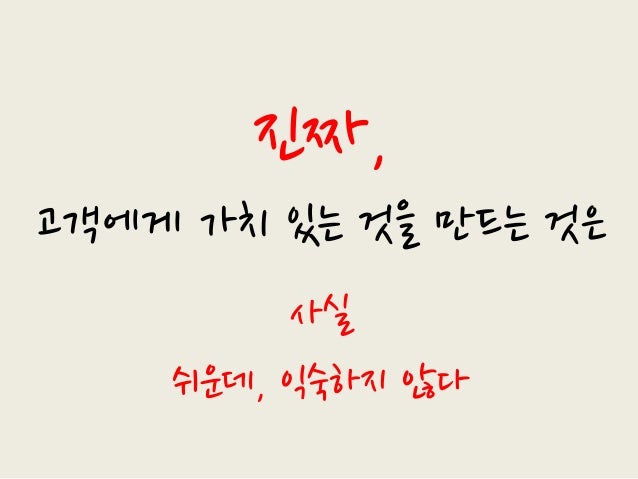 진짜,
고객에게 가치 있는 것을 만드는 것은
사실
쉬운데, 익숙하지 않다